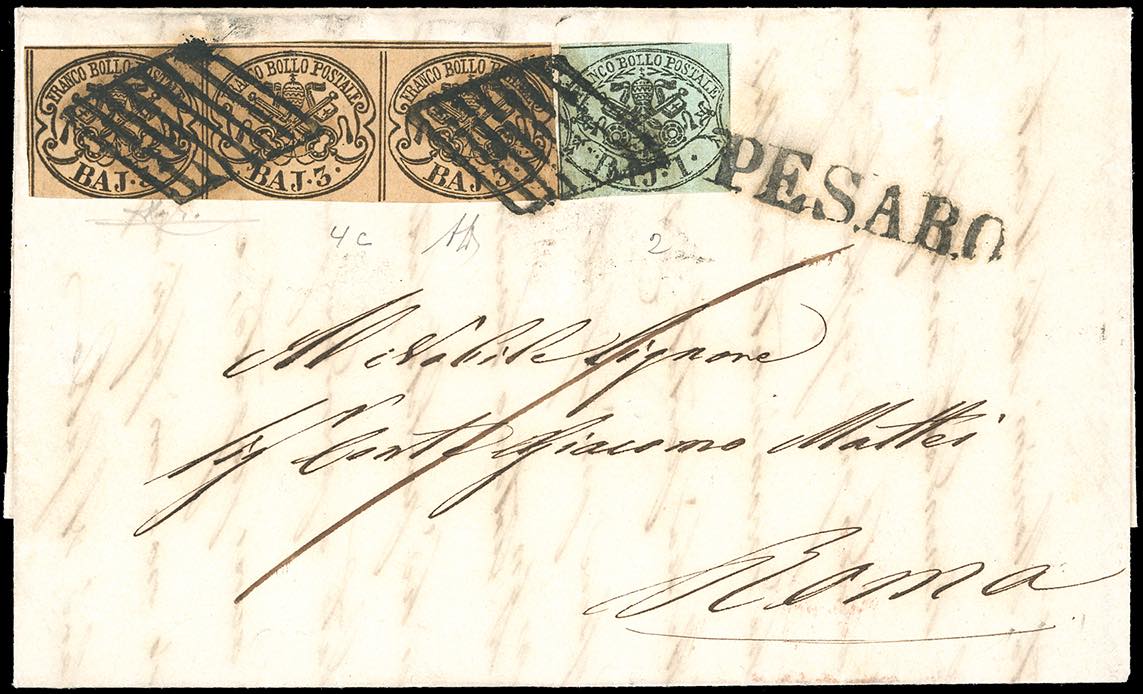 FRANCO BOLLO POSTALE FRANCO BOLLO POSTALE FRANCO BOLLO POSTALE FRANCO BOLLO POSTALE
BAJ. 3. BAJ. 3. BAJ. 3. BAJ. 1.
PESARO
4c 2
Al Nobile Signore
Sig Conte Giacomo Mattei
Roma